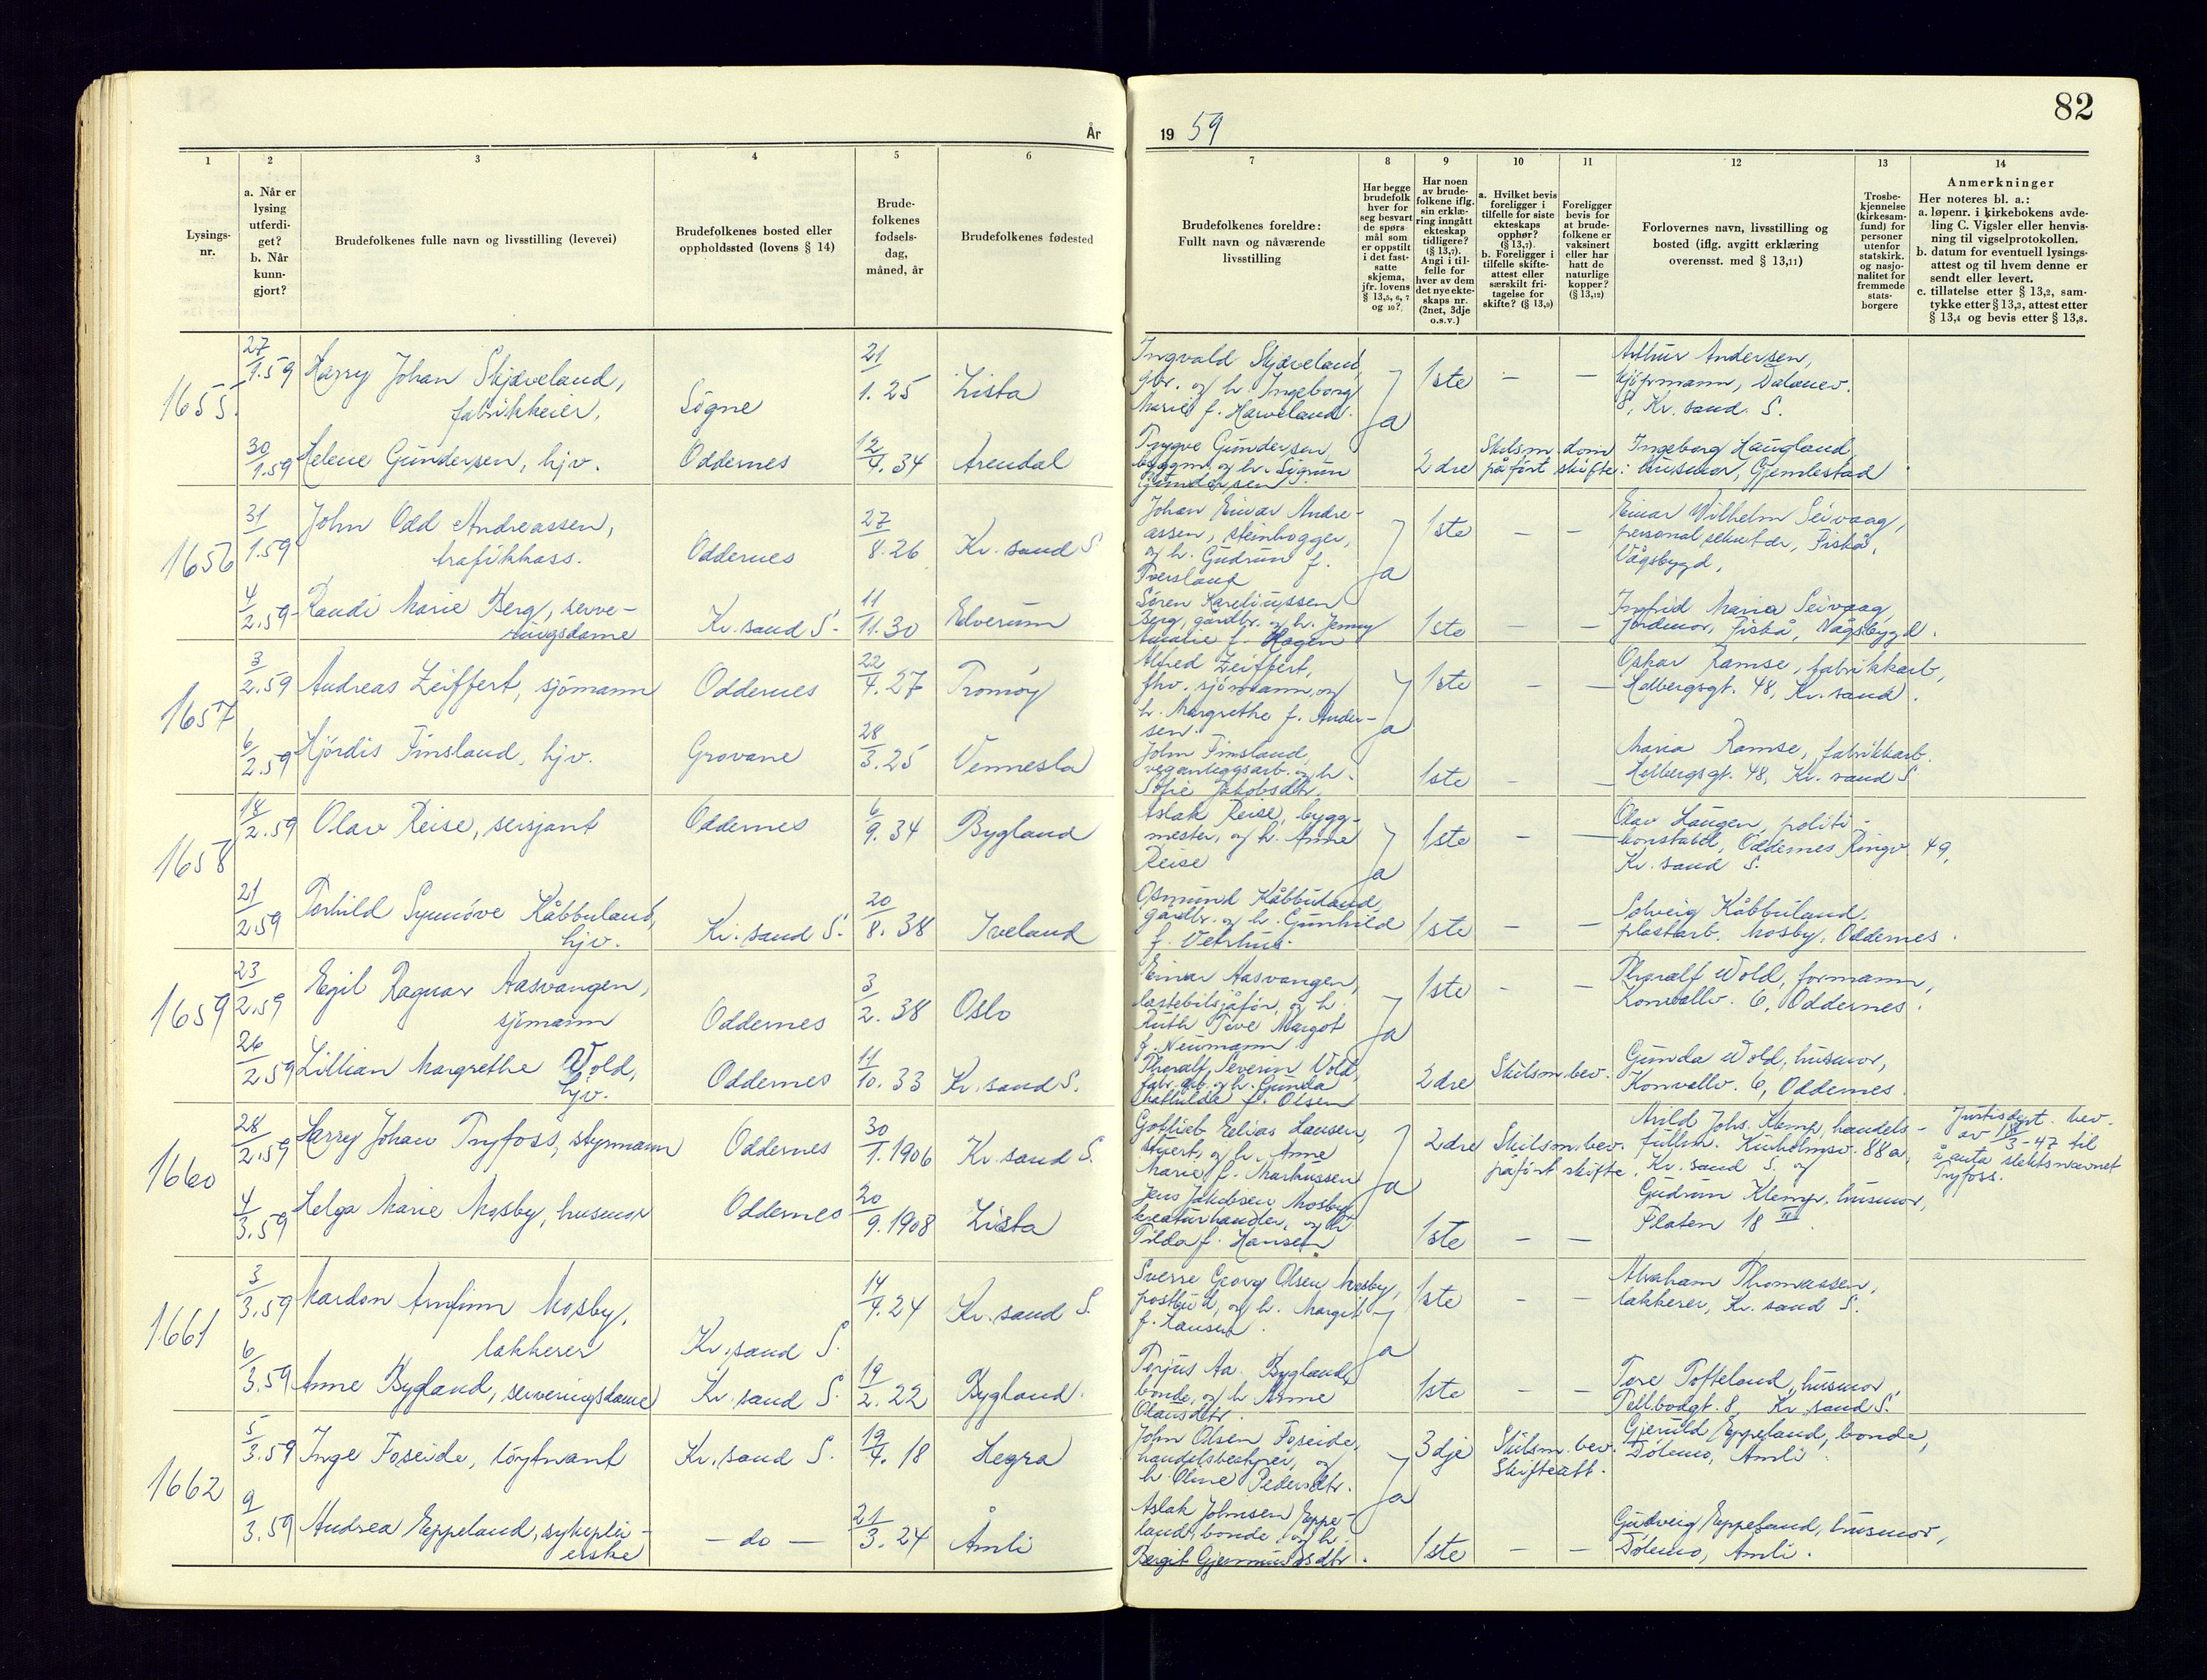 82
År
19 59
1
2
3
4
5
6
7
8
9
10
11
12
13
14
Lysings-
nr.
a. Når er
lysing
utferdi-
get?
b. Når
kunn-
gjort?
Brudefolkenes fulle navn og livsstilling (levevei)
Brudefolkenes bosted eller
oppholdssted (lovens § 14)
Brude-
folkenes
fødsels-
dag,
måned, år
Brudefolkenes fødested
Brudefolkenes foreldre:
Fullt navn og nåværende
livsstilling
Har begge
brudefolk
hver for
seg besvart
de spørs-
mål som
er oppstilt
i det fast-
satte
skjema,
jfr. lovens
§ 13,5, 6, 7
og 10?
Har noen
av brude-
folkene iflg.
sin erklæ-
ring inngått
ekteskap
tidligere?
(§ 13,7).
Angi i til-
felle for
hver av dem
det nye ekte-
skaps nr.
(2net, 3dje
o.s.v.)
a. Hvilket bevis
foreligger i
tilfelle for siste
ekteskaps
opphør?
(§ 13,7).
b. Foreligger i
tilfelle skifte-
attest eller
særskilt fri-
tagelse for
skifte? (§ 13,9)
Foreligger
bevis for
at brude-
folkene er
vaksinert
eller har
hatt de
naturlige
kopper?
(§ 13,12)
Forlovernes navn, livsstilling og
bosted (iflg. avgitt erklæring
overensst. med § 13,11)
Trosbe-
kjennelse
(kirkesam-
fund) for
personer
utenfor
statskirk.
og nasjo-
nalitet for
fremmede
stats-
borgere
Anmerkninger
Her noteres bl. a.:
a. løpenr. i kirkebokens avde-
ling C. Vigsler eller henvis-
ning til vigselprotokollen.
b. datum for eventuell lysings-
attest og til hvem denne er
sendt eller levert.
c. tillatelse etter § 13,2, sam-
tykke etter § 13,3, attest etter
§ 13,4 og bevis etter § 13,8.
1655.
27/1.59
Harry Johan Skjæveland,
fabrikkeier,
Søgne
21/1.25
Lista
Ingvald Skjæveland,
gbr. og h. Ingeborg
Marie f. Haveland.
Ja
1ste
—
—
Arthur Andersen,
kjøpmann, Dalanev.
8, Kr. sand. S.
30/1.59
Helene Gundersen, hjv.
Oddernes
12/4.34
Arendal
Trygve Gundersen,
byggm, og h. Sigrun
Gundersen.
2dre
Skilsm. dom
påført skifte.
Ingeborg Haugland,
husmor, Gjemlestad
1656
31/1.59
John Odd Andreassen,
trafikkass.
Oddernes
27/8.26
Kr. sand S
Johan Einar Andre-
assen, steinhogger,
og h. Gudrun f.
Tversland
Ja
1ste
—
—
Einar Wilhelm Seivaag,
personalsekretær, Fiskå,
Vågsbygd,
4/2.59
Randi Marie Berg, serve-
ringsdame
Kr. sand S.
11/11.30
Elverum
Søren Kareliussen
Berg, gårdbr. og h. Jenny
Amalie f. Hagen
1ste
—
—
Ingrid Maria Seivaag,
jordmor, Fiskå, Vågsbygd.
1657
3/2.59
Andreas Zeiffert, sjømann
Oddernes
22/4.27
Tromøy
Alfred Zeiffert,
fhv. sjømann, og
h. Margrethe f. Ander-
sen.
Ja
1ste
—
—
Oskar Ramse, fabrikkarb,
Holbergsgt. 48, Kr. sand.
6/2.59
Hjørdis Finsland, hjv.
Grovane
28/3.25
Vennesla
John Finsland,
veganleggsarb. og h.
Sofie Jakobsdtr.
1ste
—
—
Maria Ramse, fabrikkarb.
Holbergsgt. 48, Kr. sand S
1658
18/2.59
Olav Reise, sersjant
Oddernes
6/9.34
Bygland
Aslak Reise, bygg-
mester, og h. Anne
Reise
Ja
1ste
—
—
Olav Haugen, politi-
konstabel, Oddernes Ringv. 49,
Kr. sand S.
21/2.59
Torhild Synnøve Kåbbuland,
hjv.
Kr. sand S.
20/8.38
Iveland
Osmund Kåbbuland,
gårdbr. og h. Gunhild
f. Vehrhus.
1ste
—
—
Solveig Kåbbuland.
plastarb. Mosby, Oddernes.
1659
23/2.59
Egil Ragnar Aasvangen,
sjømann
Oddernes
3/2.38
Oslo
Einar Aasvangen,
lastebilsjåfør, og h.
Ruth Tove Margot
f. Neumann
Ja
1ste
—
—
Thoralf Wold, formann,
Konvallv. 6, Oddernes.
26/2.59
Lillian Margrethe Wold,
hjv.
Oddernes
11/10.33
Kr. sand S.
Thoralf Severin Wold,
fabr. arb. og h. Gunda
Mathilde f. Olsen
2dre
Skilsm. bev.
Gunda Wold, husmor,
Konvallv. 6, Oddernes.
1660
28/2.59
Harry Johan Tryfoss, styrmann
Oddernes
30/1.1906
Kr. sand S.
Gottlieb Eelias Hansen,
stuert, og h. Anne
Marie f. Markussen
Ja
2dre
Skilsm. bev.
påført skifte.
Arild Johs. Klemp, handels-
fullm. Kuholmsv. 88a,
Kr. sand S. og
Justisdept. bev.
av 18/3-47 til
å anta slektsnavnet
Tryfoss.
4/3.59
Helga Marie Mosby, husmor
Oddernes
20/9.1908
Lista
Jens Jakobsen Mosby
kreaturhandler, og h
Tilda f. Hansen
1ste
—
—
Gudrun Klemp, husmor,
Flaten 18 II.
1661
3/3.59
Mardon Arnfinn Mosby,
lakkerer
Kr. sand S.
14/4.24
Kr. sand S.
Sverre Georg Olsen Mosby,
postbud, og h. Margit
f. Hansen.
Ja
1ste
—
—
Abraham Thomassen,
lakkerer, Kr. sand S.
6/3.59
Anne Bygland, serveringsdame
Kr. sand S
19/2.22
Bygland.
Torjus Aa. Bygland,
bonde, og h Anne
Olausdtr.
1ste
—
—
Tore Tofteland, husmor
Tollbodgt. 8, Kr. sand S.
1662
5/3.59
Inge Foseide, løytnant
Kr. sand S.
19/4.18
Hegra
John Olsen Foseide,
handelsbestyrer, og
h. Oline Pedersdtr.
Ja
3dje
Skilsm. bev.
Skifteatt.
Gjeruld Eppeland, bonde,
Dølemo, Åmli.
9/3.59
Andrea Eppeland, sykeplei-
erske
— do —
21/3.24
Åmli
Aslak Johnsen Eppe-
land, bonde, og h.
Bergit Gjermundsdtr.
1ste
—
—
Gudveig Eppeland, husmor,
Dølemo, Åmli.